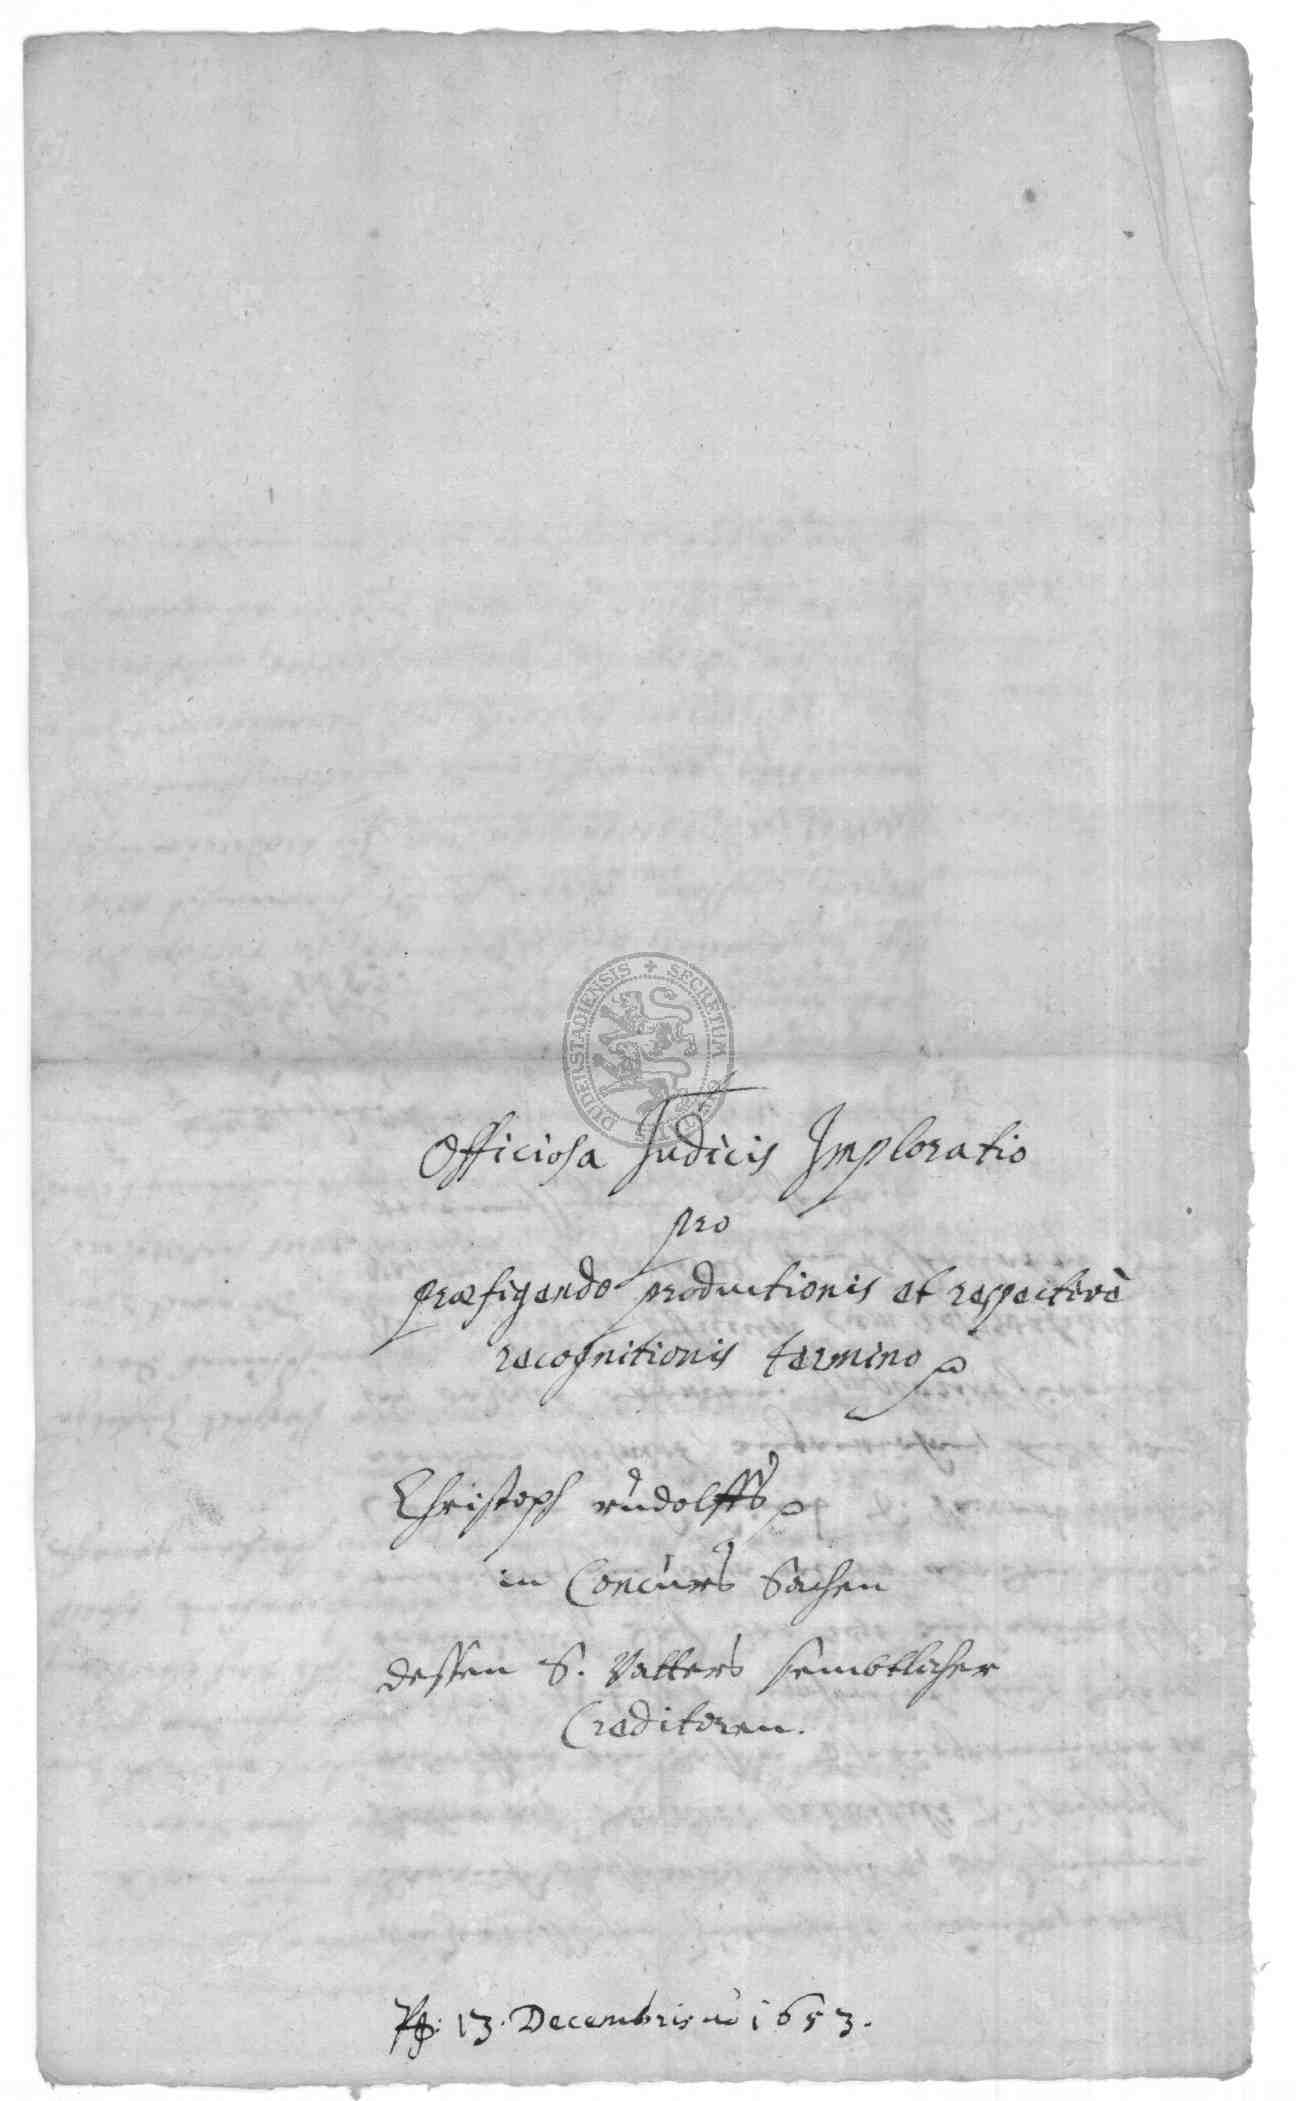 DUDERSTADIENSIS + SECRETUM
Officiosa Judicis Imploratio
pro
præfigendo productionis et respectivè
recognitionis termino
Christoph rudolffs
in Concurs Sachen
dessen S. Vatters sembtlicher
Creditoren.
13. Decembris 1653.